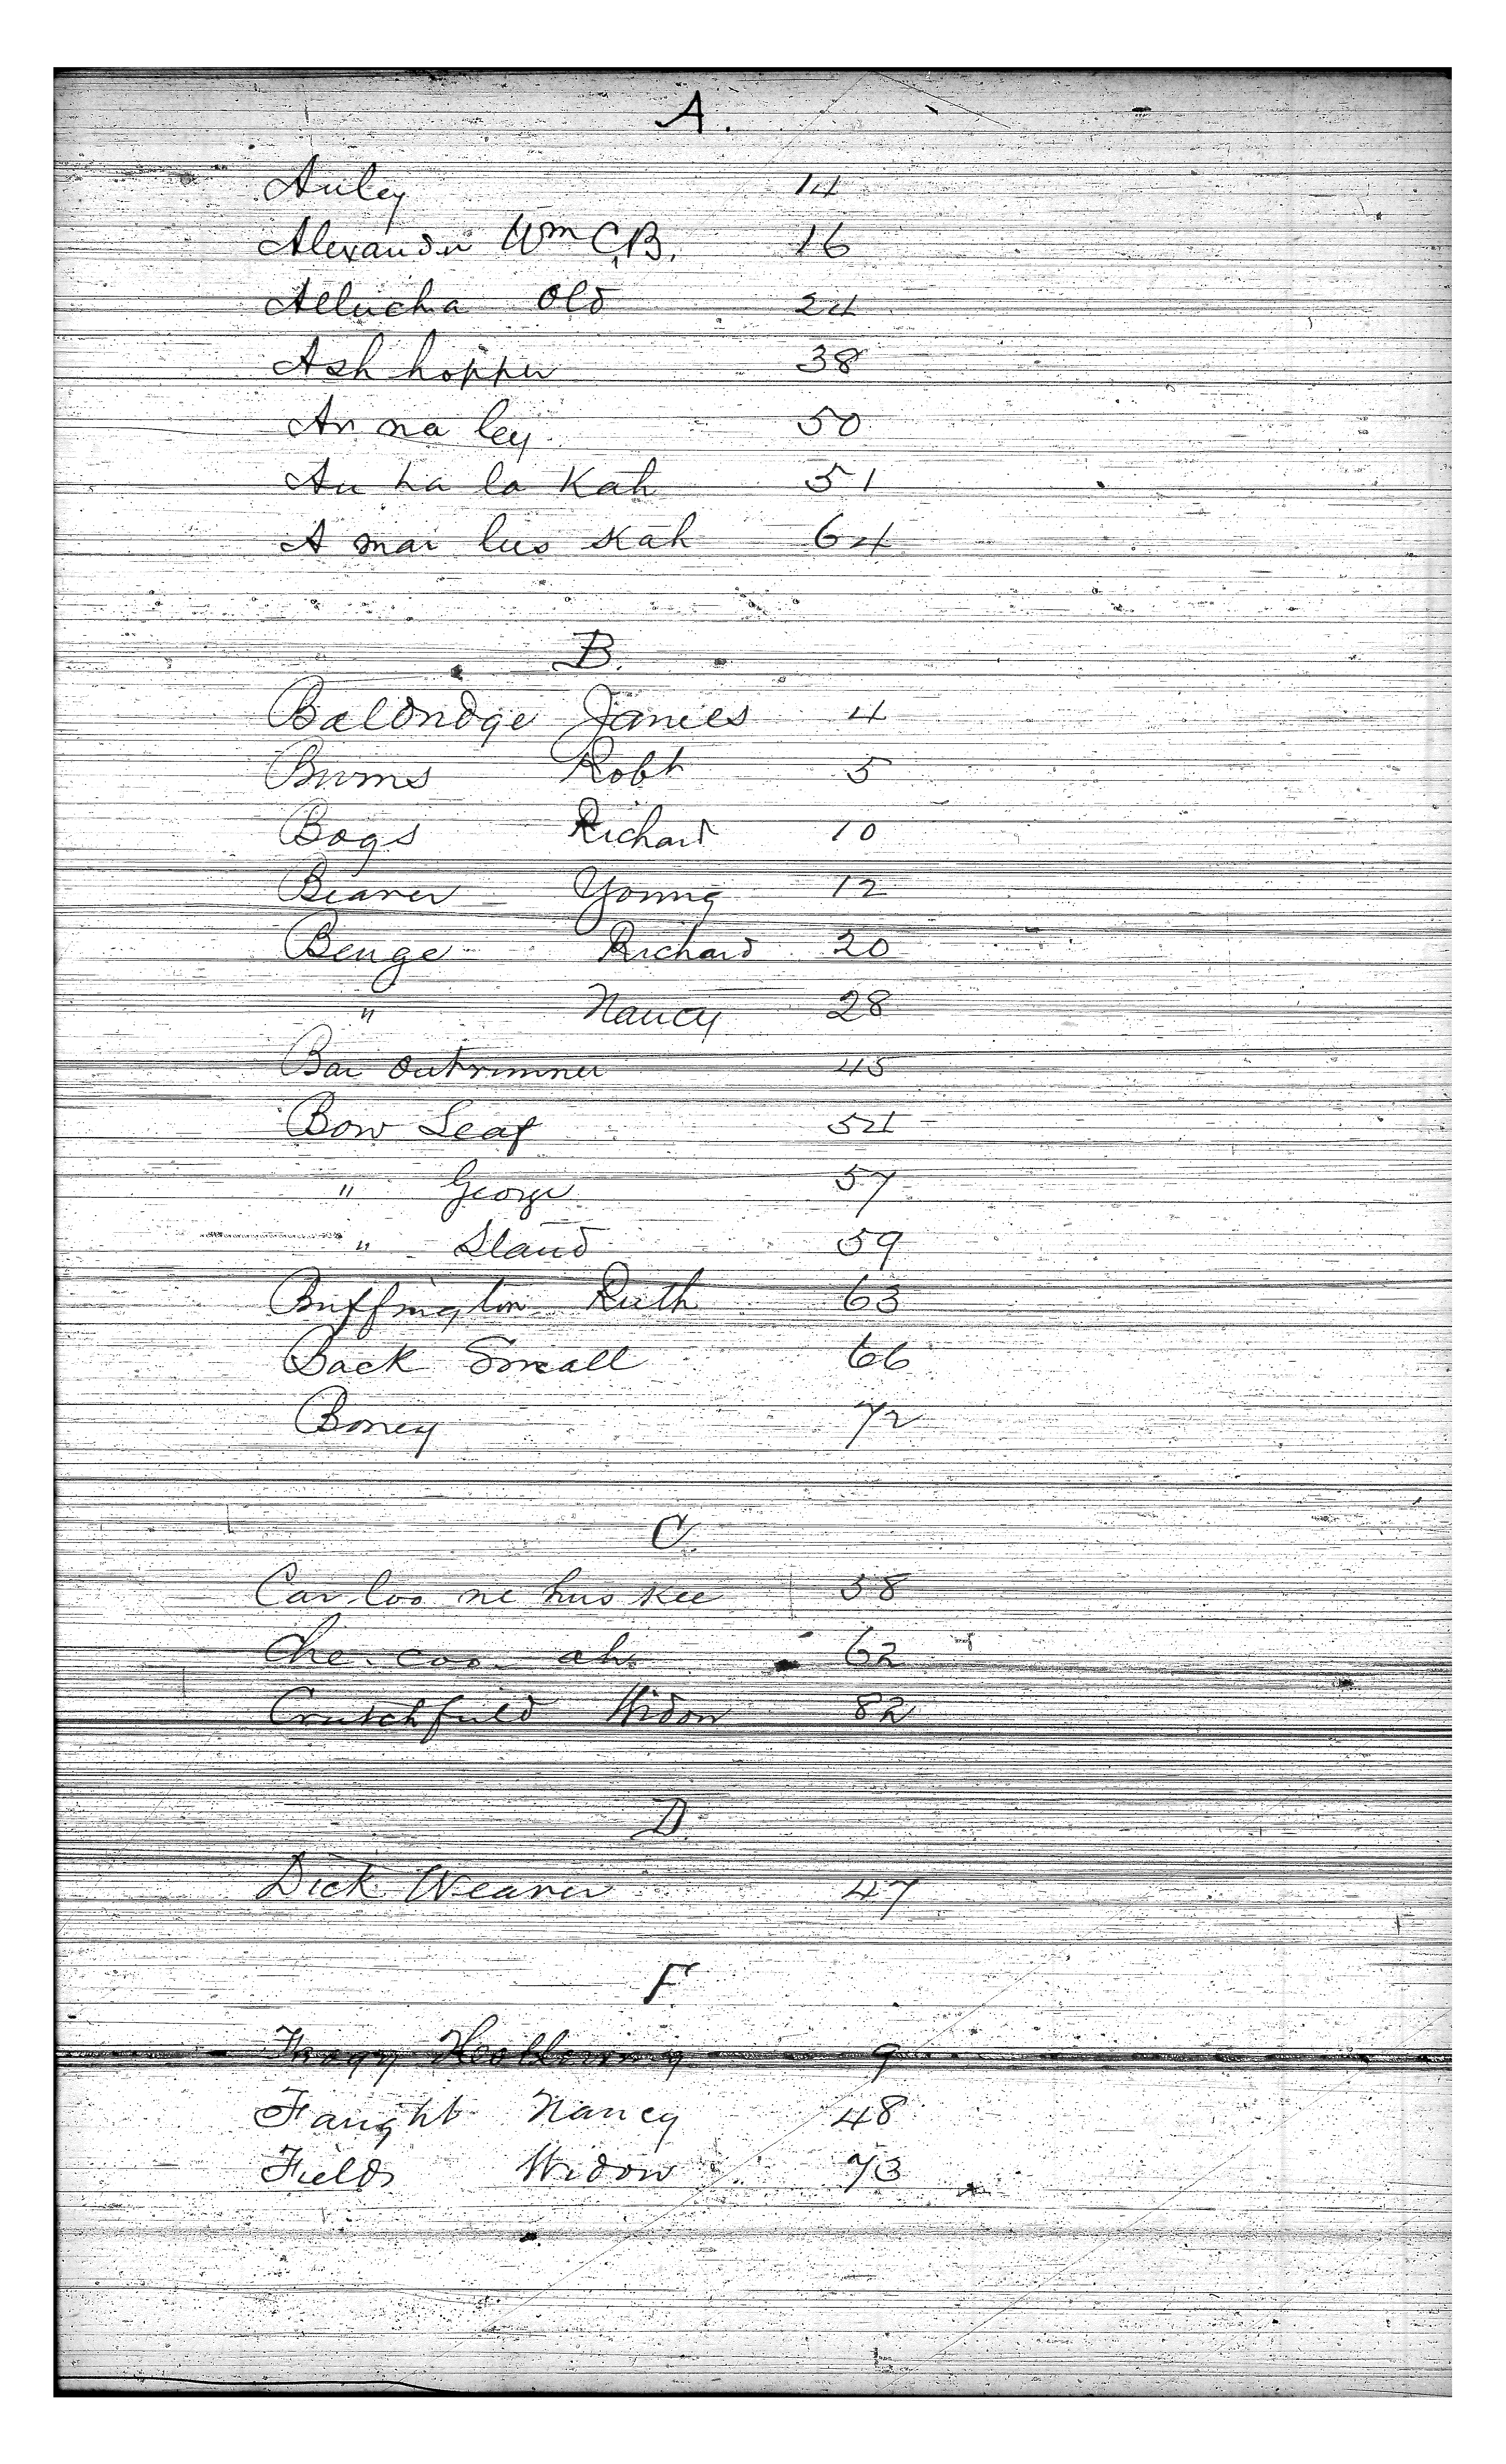 A.
Auley 14
Alexander Wm C,B. 16
Allucha Old 24
Ash hopper 38
An na ley 50
Au ha la Kah 51
A mai lus skah 64
B.
Baldridge James 4
Burns Robt 5
Bogs Richard 10
Beaver Young 12
Benge Richard 20
" Nancy 28
Bar outrunner 45
Bow Leaf 54
" George 57
" Stand 59
Buffington Ruth 63
Back Small 66
Boney 72
C.
Car loo ne hus kee 58
Che. coo. ah. 62
Crutchfield Widow 82
D.
Dick Weaver 47
F.
9
Faught Nancy 48
Fields Widow 73